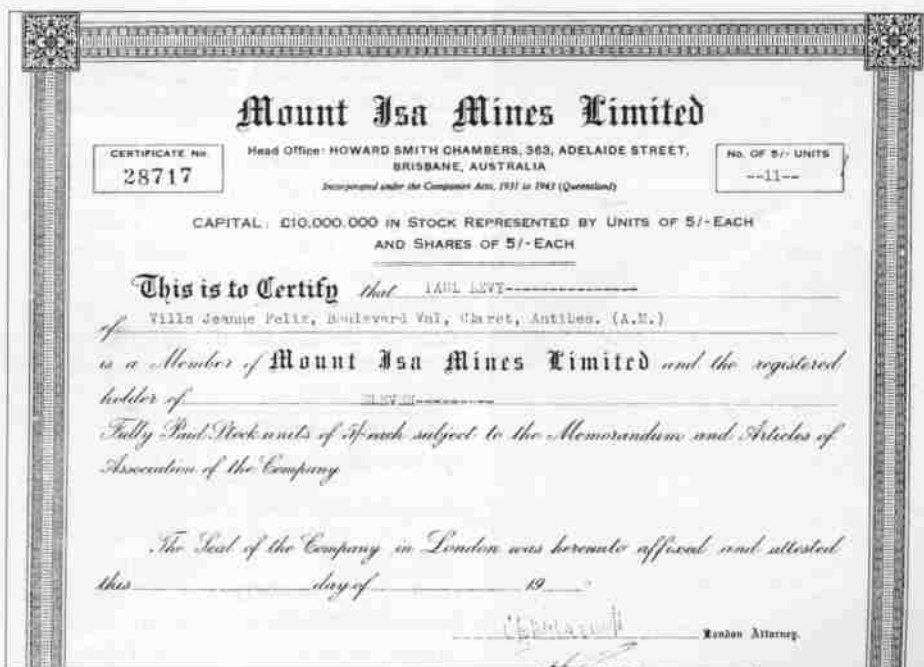 Mount Isa Mines Limited
CERTIFICATE No.
28717
Head Office: HOWARD SMITH CHAMBERS, 363, ADELAIDE STREET,
BRISBANE, AUSTRALIA
Incorporated under the Companies Acts, 1931 to 1943 (Queensland)
No. OF 5/- UNITS
--11--
CAPITAL: £10,000,000 IN STOCK REPRESENTED BY UNITS OF 5/- EACH
AND SHARES OF 5/- EACH
This is to Certify that PAUL LEVY----------------
of Villa Jeanne Felix, Boulevard Val, Claret, Antibes. (A.M.)
is a Member of Mount Isa Mines Limited and the registered
holder of ELEVEN----------
Fully Paid Stock units of 5/- each subject to the Memorandum and Articles of
Association of the Company
The Seal of the Company in London was hereunto affixed and attested
this day of 19
London Attorney.